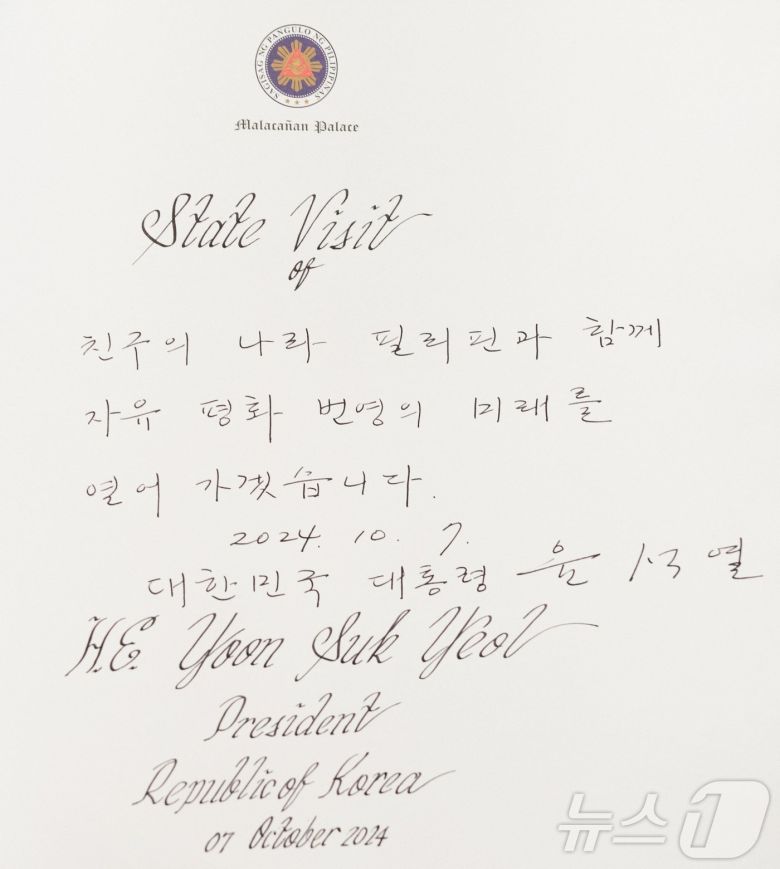 SAGISAG NG PANGULO NG PILIPINAS
Malacañan Palace
State Visit
of
친구의 나라 필리핀과 함께
자유 평화 번영의 미래를
열어 가겠습니다.
2024. 10. 7.
대한민국 대통령 윤석열
H.E. Yoon Suk Yeol
President
Republic of Korea
07 October 2024
뉴스1